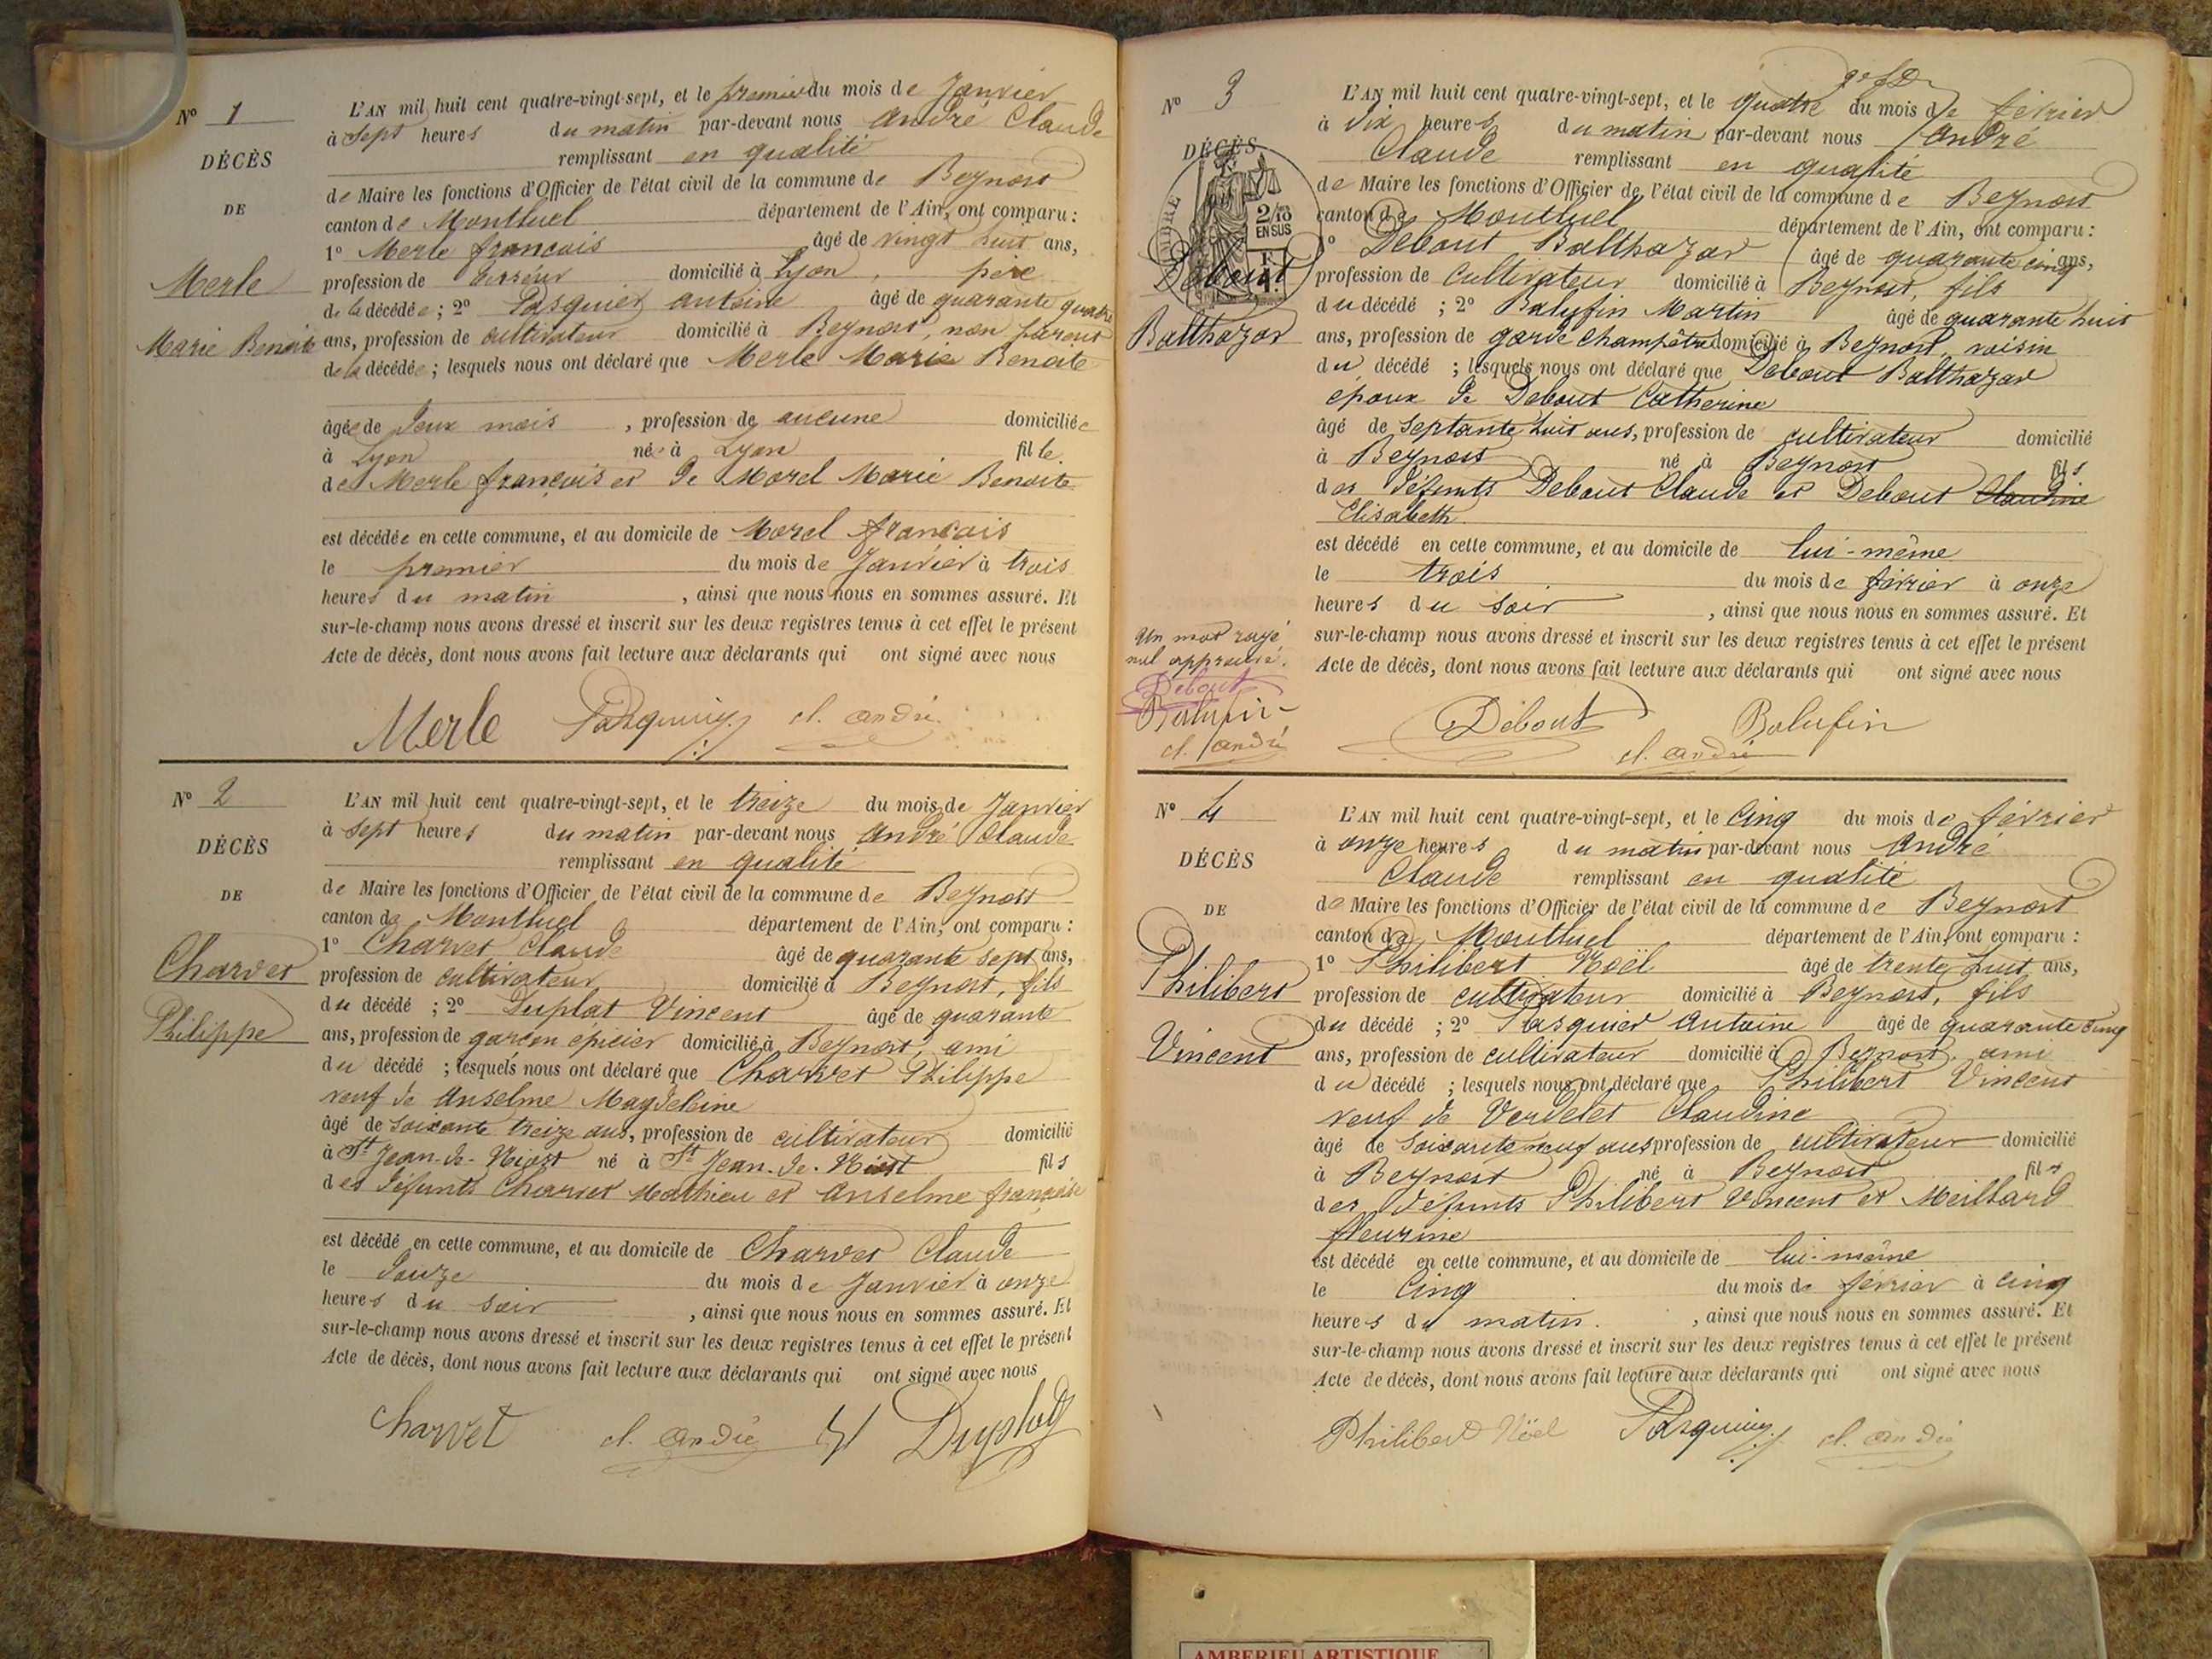 N° 1
DÉCÈS
DE
Merle
Marie Benoite
L'AN mil huit cent quatre-vingt-sept, et le premier du mois de Janvier
à sept heures du matin par-devant nous André Claude
remplissant en qualité
de Maire les fonctions d'Officier de l'état civil de la commune de Beynost
canton de Montluel département de l'Ain, ont comparu :
1° Merle françois âgé de vingt huit ans,
profession de domicilié à Lyon, père
de la décédée ; 2° Pasquier antoine âgé de quarante quatre
ans, profession de cultivateur domicilié à Beynost, non parent
de la décédée ; lesquels nous ont déclaré que Merle Marie Benoite
âgée de deux mois , profession de aucune domiciliée
à Lyon née à Lyon fille
de Merle françois et de Morel Marie Benoite
est décédée en cette commune, et au domicile de Morel françois
le premier du mois de Janvier à trois
heures du matin , ainsi que nous nous en sommes assuré. Et
sur-le-champ nous avons dressé et inscrit sur les deux registres tenus à cet effet le présent
Acte de décès, dont nous avons fait lecture aux déclarants qui ont signé avec nous
Merle Pasquier cl. andré
N° 2
DÉCÈS
DE
Charvet
Philippe
L'AN mil huit cent quatre-vingt-sept, et le treize du mois de Janvier
à sept heures du matin par-devant nous André Claude
remplissant en qualité
de Maire les fonctions d'Officier de l'état civil de la commune de Beynost
canton de Montluel département de l'Ain, ont comparu :
1° Charvet Claude âgé de quarante sept ans,
profession de cultivateur domicilié à Beynost, fils
du décédé ; 2° Duplat Vincent âgé de quarante
ans, profession de garçon épicier domicilié à Beynost, ami
du décédé ; lesquels nous ont déclaré que Charvet Philippe
veuf de Anselme Magdeleine
âgé de soixante treize ans, profession de cultivateur domicilié
à St Jean-de-Niost né à St Jean-de-Niost fils
des défunts Charvet Mathieu et Anselme françoise
est décédé en cette commune, et au domicile de Charvet Claude
le douze du mois de Janvier à onze
heures du soir , ainsi que nous nous en sommes assuré. Et
sur-le-champ nous avons dressé et inscrit sur les deux registres tenus à cet effet le présent
Acte de décès, dont nous avons fait lecture aux déclarants qui ont signé avec nous
Charvet cl. andré Duplat
N° 3
DÉCÈS
2/10
EN SUS
Debout
Balthazar
L'AN mil huit cent quatre-vingt-sept, et le quatre du mois de février
à dix heures du matin par-devant nous André
Claude remplissant en qualité
de Maire les fonctions d'Officier de l'état civil de la commune de Beynost
canton de Montluel département de l'Ain, ont comparu :
1° Debout Balthazar âgé de quarante cinq ans,
profession de cultivateur domicilié à Beynost, fils
du décédé ; 2° Balufin Martin âgé de quarante huit
ans, profession de garde champêtre domicilié à Beynost, voisin
du décédé ; lesquels nous ont déclaré que Debout Balthazar
époux de Debout Catherine
âgé de septante huit ans, profession de cultivateur domicilié
à Beynost né à Beynost fils
des défunts Debout Claude et Debout Claudine
Elisabeth
est décédé en cette commune, et au domicile de lui-même
le trois du mois de février à onze
heures du soir , ainsi que nous nous en sommes assuré. Et
sur-le-champ nous avons dressé et inscrit sur les deux registres tenus à cet effet le présent
Acte de décès, dont nous avons fait lecture aux déclarants qui ont signé avec nous
Un mot rayé
nul approuvé.
Debout
Balufin
cl. andré
Debout Balufin
cl. andré
N° 4
DÉCÈS
DE
Philibert
Vincent
L'AN mil huit cent quatre-vingt-sept, et le Cinq du mois de février
à onze heures du matin par-devant nous André
Claude remplissant en qualité
de Maire les fonctions d'Officier de l'état civil de la commune de Beynost
canton de Montluel département de l'Ain, ont comparu :
1° Philibert Noël âgé de trente huit ans,
profession de cultivateur domicilié à Beynost, fils
du décédé ; 2° Pasquier Antoine âgé de quarante cinq
ans, profession de cultivateur domicilié à Beynost, ami
du décédé ; lesquels nous ont déclaré que Philibert Vincent
veuf de Verdelet Claudine
âgé de soixante neuf ans profession de cultivateur domicilié
à Beynost né à Beynost fils
des défunts Philibert Vincent et Meillard
fleurine
est décédé en cette commune, et au domicile de lui-même
le Cinq du mois de février à cinq
heures du matin. , ainsi que nous nous en sommes assuré. Et
sur-le-champ nous avons dressé et inscrit sur les deux registres tenus à cet effet le présent
Acte de décès, dont nous avons fait lecture aux déclarants qui ont signé avec nous
Philibert Nöel Pasquier cl. andré
AMBERIEU ARTISTIQUE